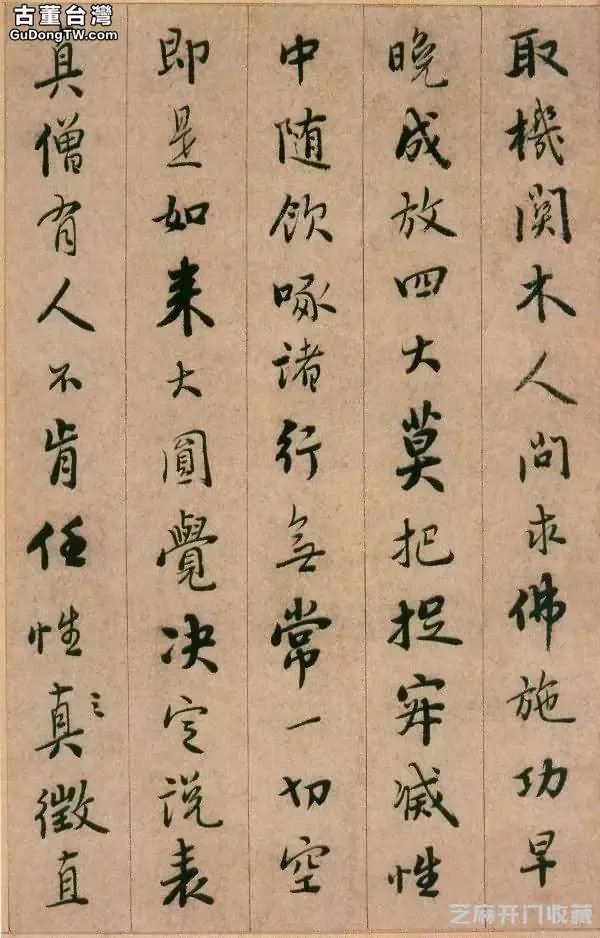 古董台灣
GuDongTW.com
取機関木人問求佛施功早
晚成放四大莫把捉寂滅性
中随飲啄諸行無常一切空
即是如来大圓覺决定説表
真僧有人不肯任性真徵直
芝麻开门收藏